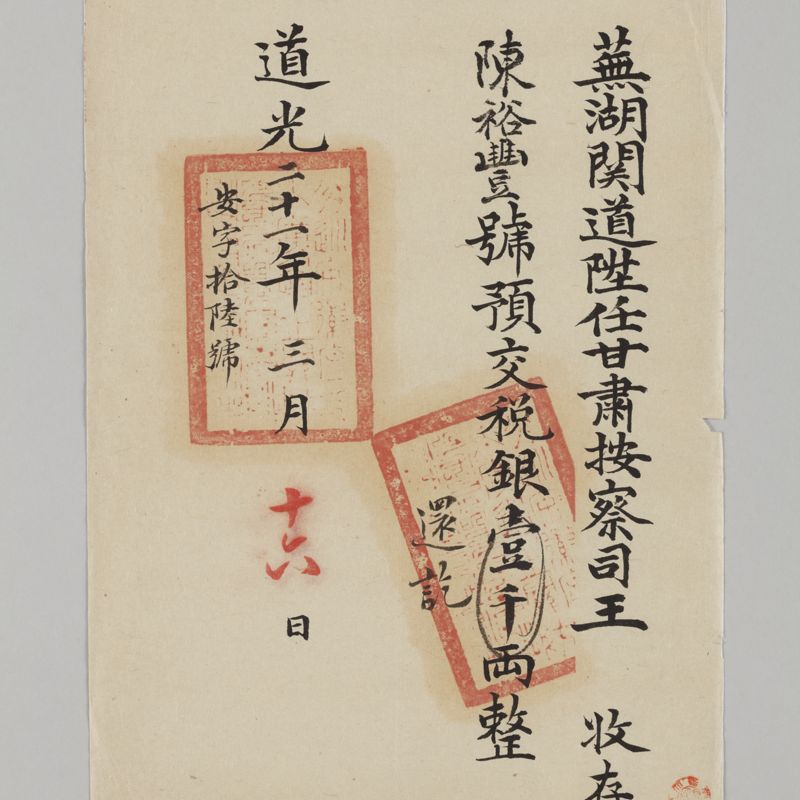 蕪湖関道陞任甘肅按察司王 收存
陳裕豐號預交税銀壹千両整
還訖
道光二十一年三月十六日
安字拾陸號